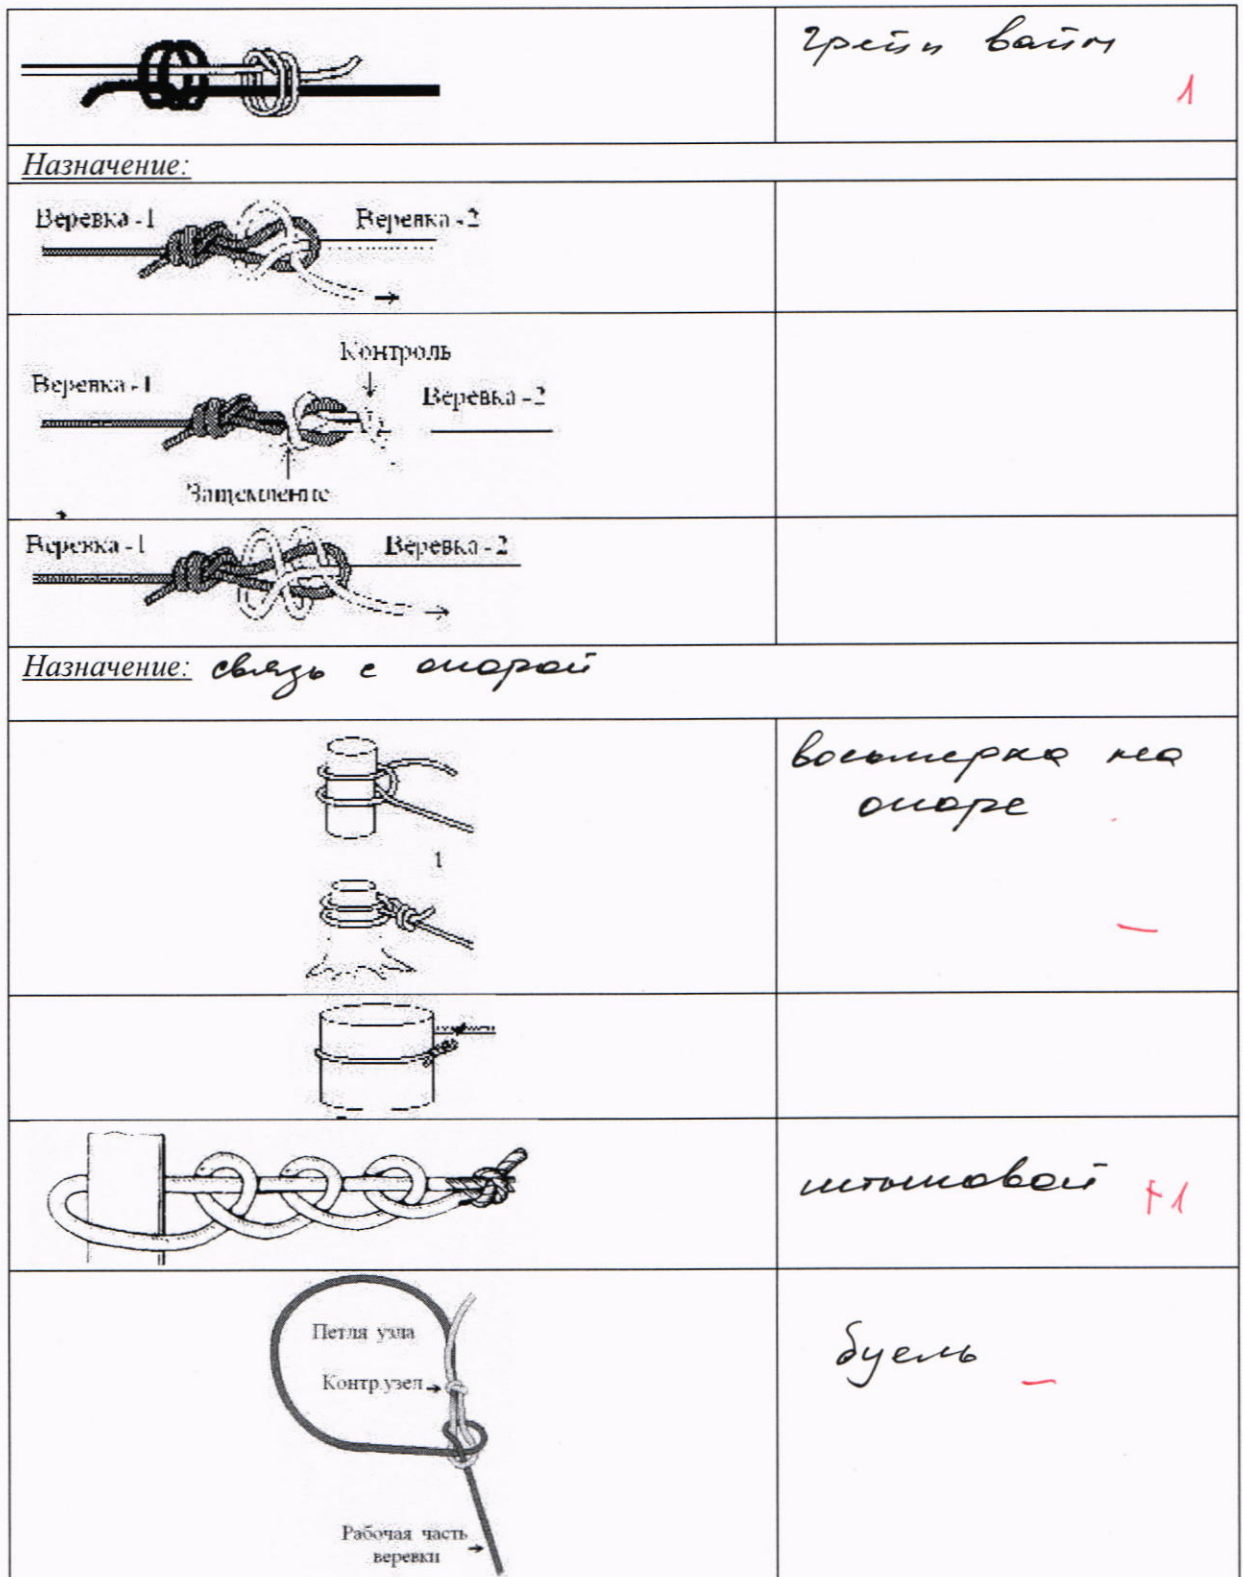 грейп вайн
1
Назначение:
Веревка -1 Веревка -2
Контроль
Веревка -1 Веревка -2
Защемление
Веревка -1 Веревка - 2
Назначение: связь с опорой
восьмерка на
опоре
1
—
штыковой +1
Петля узла
Контр.узел
буель —
Рабочая часть
веревки